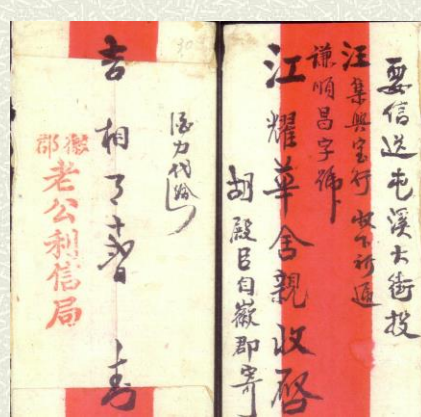 要信送屯溪大街投
汪集興宝行收下祈逓
謙順昌字號
江耀華舍親收啓
胡殿臣自徽郡寄
酒力代給
吉相月日封
徽郡
老公利信局
30